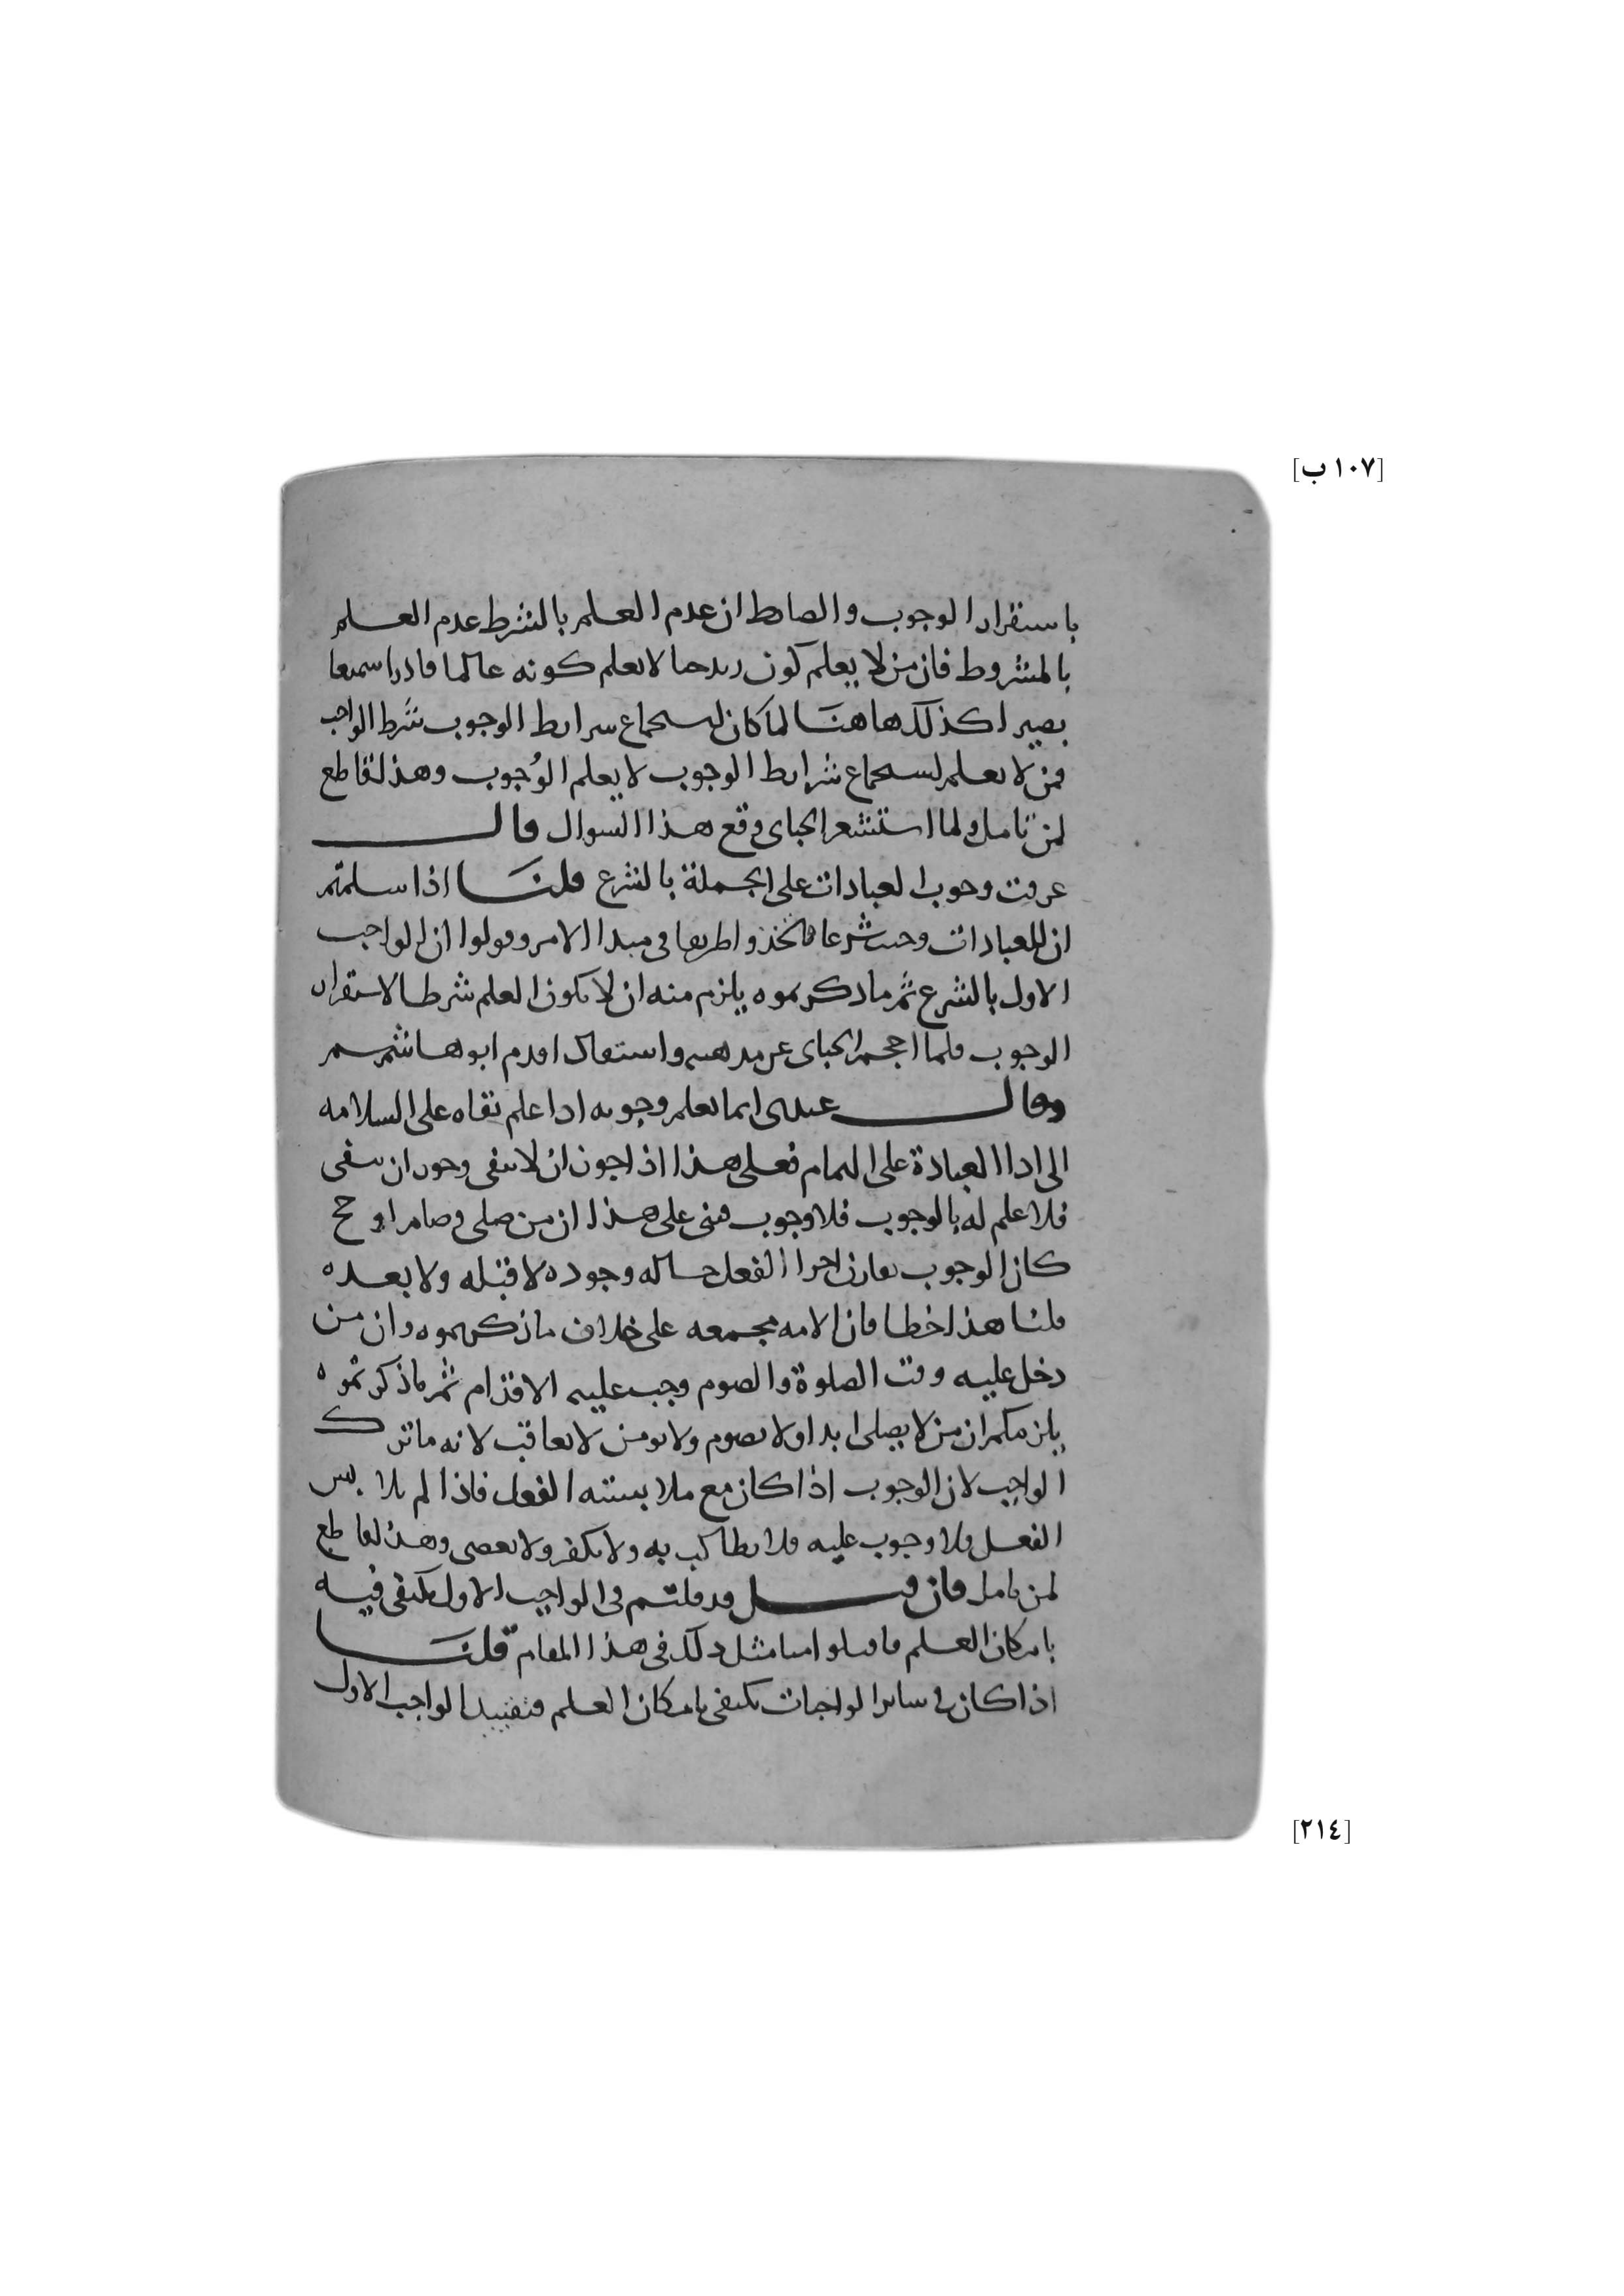 [١٠٧ ب]
باستقرار الوجوب والضابط ان عدم العلم بالشرط عدم العلم
بالمشروط فان من لا يعلم كون زيد حيا لا يعلم كونه عالما قادرا سميعا
بصيرا كذلك هاهنا لما كان استجماع شرايط الوجوب شرط الواجب
فمن لا يعلم استجماع شرايط الوجوب لا يعلم الوجوب وهذا قاطع
لمن تامل ولما استشعر الجباى وقع هذا السوال قال
عرفت وجوب العبادات على الجملة بالشرع قلنا اذا سلمتم
ان العبادات وجبت شرعا فاتخذوا طريقا فى مبدا الامر وقولوا ان الواجب
الاول بالشرع ثم ما ذكرتموه يلزم منه ان لا يكون العلم شرطا لاستقرار
الوجوب فلما احجم الجباى عن مذهبه واستقال اقدم ابو هاشم
وقال عندى انما يعلم وجوبه اذا علم بقاه على السلامه
الى ادا العبادة على التمام فعلى هذا اذا جوز ان لا يبقى وجوز ان يبقى
فلا علم له بالوجوب فلا وجوب فبنى على هذا ان من صلى وصام او حج
كان الوجوب يقارن اجزا الفعل حالة وجوده لا قبله ولا بعده
قلنا هذا خطا فان الامه مجمعه على خلاف ما ذكرتموه وان من
دخل عليه وقت الصلوة والصوم وجب عليه الاقدام ثم ما ذكرتموه
يلزمكم ان من لا يصلى ابدا ولا يصوم ولا يومن لا يعاقب لانه ما ترك
الواجب لان الوجوب اذا كان مع ملابسته الفعل فاذا لم يلابس
الفعل فلا وجوب عليه فلا يطالب به ولا يكفر ولا يعصى وهذا قاطع
لمن تامل فان قيل قد قلتم فى الواجب الاول يكتفى فيه
بامكان العلم فاقبلوا منا مثل ذلك فى هذا المقام قلنا
اذا كان فى ساير الواجبات يكتفى بامكان العلم فتقييد الواجب الاول
[٢١٤]